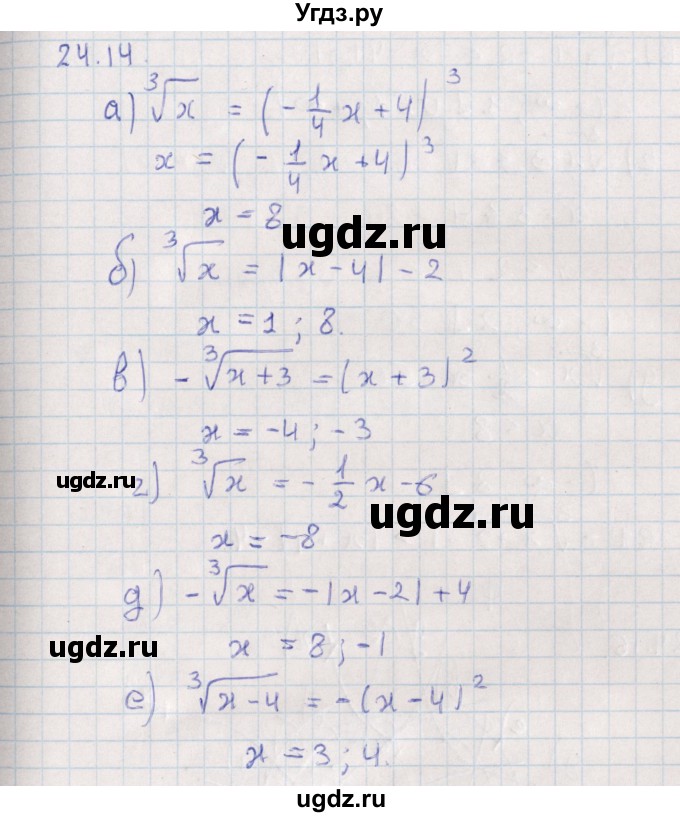 Угдз.ру
24.14.
а) ∛x = (-1/4 x + 4)^3
x = (-1/4 x + 4)^3
x = 8
ugdz.ru
б) ∛x = |x - 4| - 2
x = 1; 8.
в) -∛(x + 3) = (x + 3)^2
x = -4; -3
ugdz.ru
г) ∛x = -1/2 x - 6
ugdz.ru
x = -8
д) -∛x = -|x - 2| + 4
ugdz.ru
x = 8; -1
е) ∛(x - 4) = -(x - 4)^2
x = 3; 4.
ugdz.ru